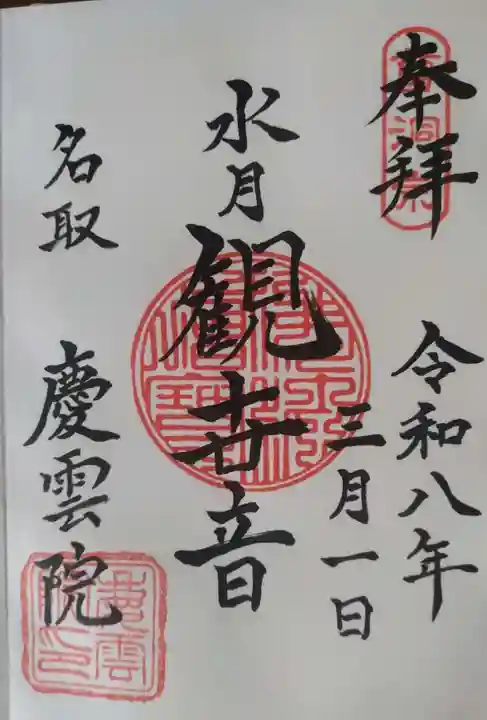 奉拝
令和八年
三月一日
水月
観世音
名取 慶雲院